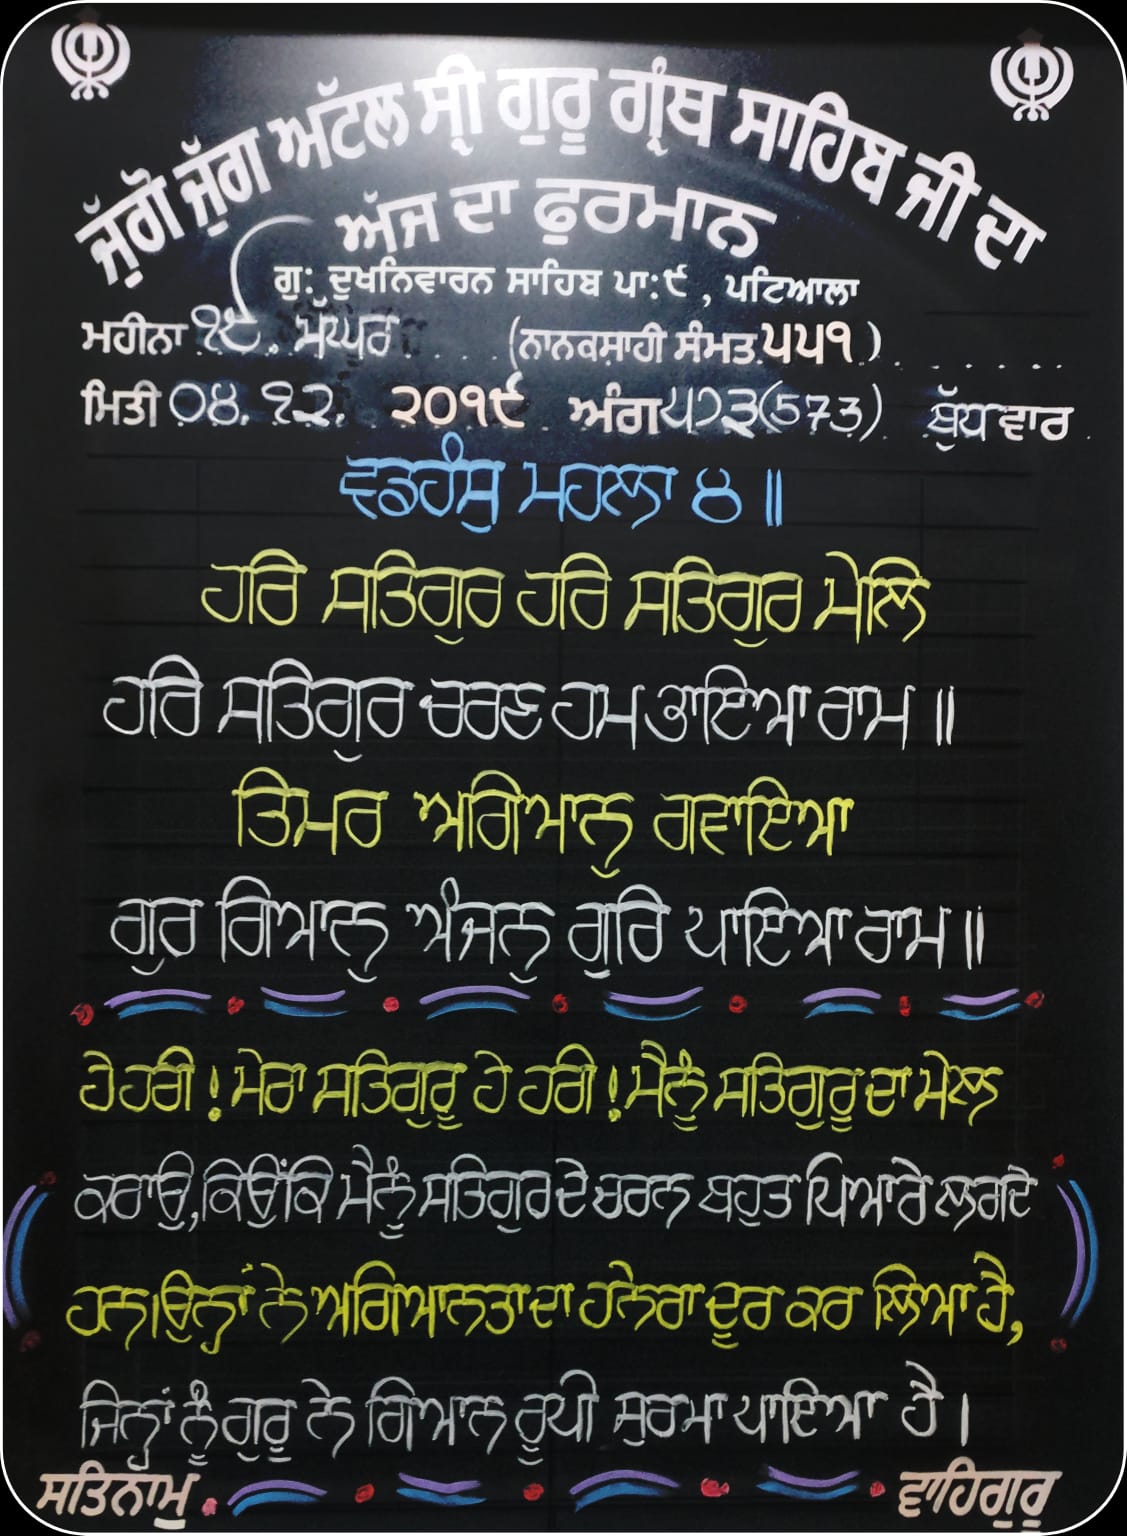 ਜੁੱਗੋ ਜੁੱਗ ਅੱਟਲ ਸ੍ਰੀ ਗੁਰੂ ਗ੍ਰੰਥ ਸਾਹਿਬ ਜੀ ਦਾ
ਅੱਜ ਦਾ ਫੁਰਮਾਨ
ਗੁ: ਦੁਖਨਿਵਾਰਨ ਸਾਹਿਬ ਪਾ:੯, ਪਟਿਆਲਾ
ਮਹੀਨਾ ੧੯, ਮੱਘਰ (ਨਾਨਕਸਾਹੀ ਸੰਮਤ ੫੫੧)
ਮਿਤੀ ੦੪.੧੨. ੨੦੧੯ ਅੰਗ ੫੭੩(573) ਬੁੱਧਵਾਰ
ਵਡਹੰਸੁ ਮਹਲਾ ੪ ॥
ਹਰਿ ਸਤਿਗੁਰ ਹਰਿ ਸਤਿਗੁਰ ਮੇਲਿ
ਹਰਿ ਸਤਿਗੁਰ ਚਰਣ ਹਮ ਭਾਇਆ ਰਾਮ ॥
ਤਿਮਰ ਅਗਿਆਨੁ ਗਵਾਇਆ
ਗੁਰ ਗਿਆਨੁ ਅੰਜਨੁ ਗੁਰਿ ਪਾਇਆ ਰਾਮ ॥
ਹੇ ਹਰੀ ! ਮੇਰਾ ਸਤਿਗੁਰੂ ਹੇ ਹਰੀ ! ਮੈਨੂੰ ਸਤਿਗੁਰੂ ਦਾ ਮੇਲ
ਕਰਾਉ, ਕਿਉਂਕਿ ਮੈਨੂੰ ਸਤਿਗੁਰ ਦੇ ਚਰਨ ਬਹੁਤ ਪਿਆਰੇ ਲਗਦੇ
ਹਨ।ਉਨ੍ਹਾਂ ਨੇ ਅਗਿਆਨਤਾ ਦਾ ਹਨੇਰਾ ਦੂਰ ਕਰ ਲਿਆ ਹੈ,
ਜਿਨ੍ਹਾਂ ਨੂੰ ਗੁਰੂ ਨੇ ਗਿਆਨ ਰੂਪੀ ਸੁਰਮਾ ਪਾਇਆ ਹੈ ।
ਸਤਿਨਾਮੁ ਵਾਹਿਗੁਰੂ